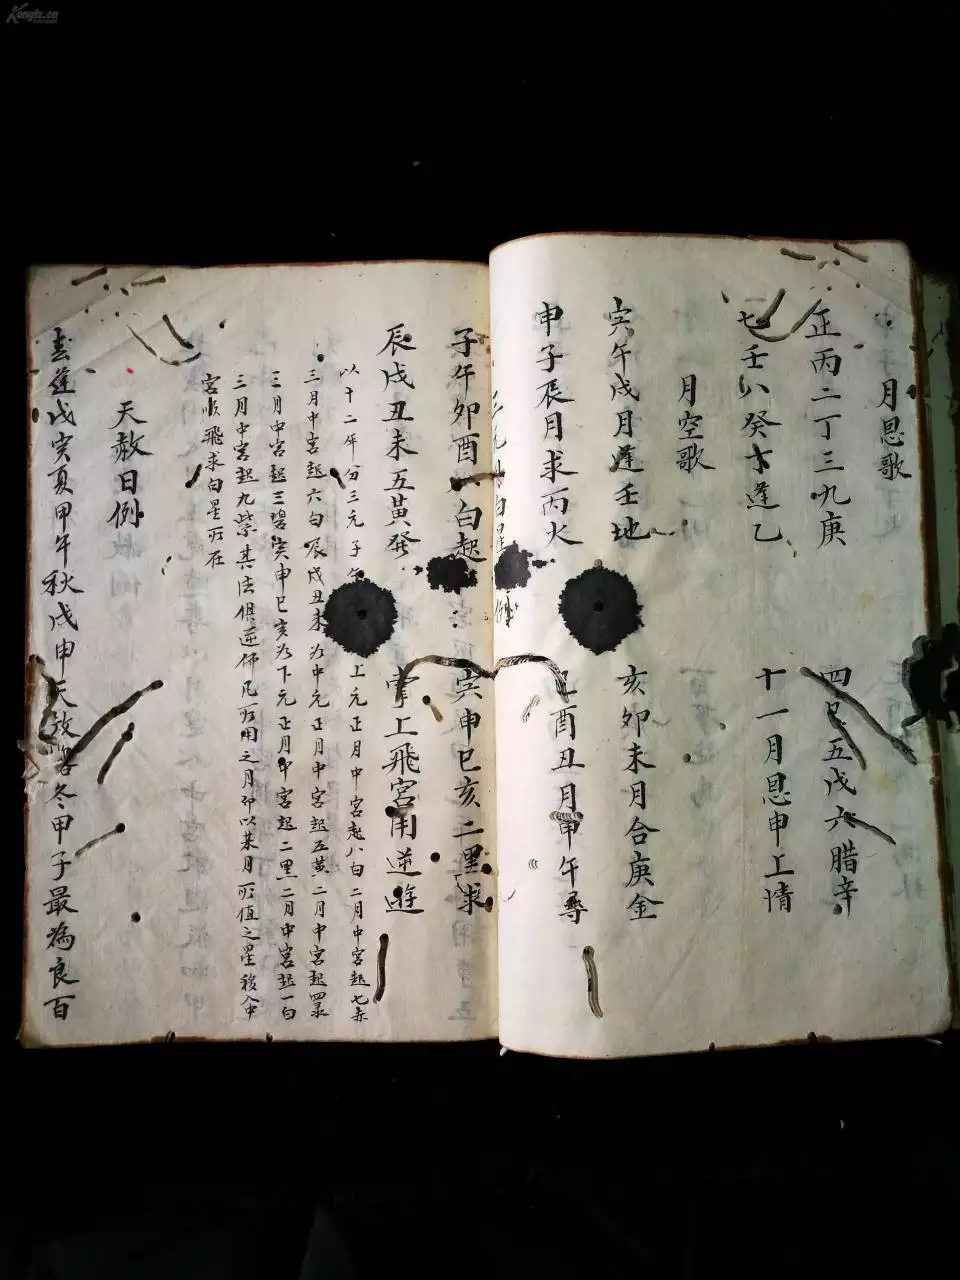 月恩歌
正丙二丁三九庚 四巳五戊六腊辛
七壬八癸十逢乙 十一月恩申上情
月空歌
寅午戌月逢壬地 亥卯未月合庚金
申子辰月求丙火 酉丑月甲午尋
三元 白星 例
子午卯酉 白起 寅申巳亥二黑求
辰戌丑未五黃發 掌上飛宮用逆遊
以十二年分三元子 上元正月中宮起八白二月中宮起七赤
三月中宮起六白辰戌丑未為中元正月中宮起五黃二月中宮起四录
三月中宮起三碧寅申巳亥為下元正月中宮起二黑二月中宮起一白
三月中宮起九紫其法俱逆佈凡所用之月卯以某月所值之星移入中
宮順飛求白星所在
天赦日例
春逢戊寅夏甲午秋戊申天放 冬甲子最為良百
Kongfz.cn